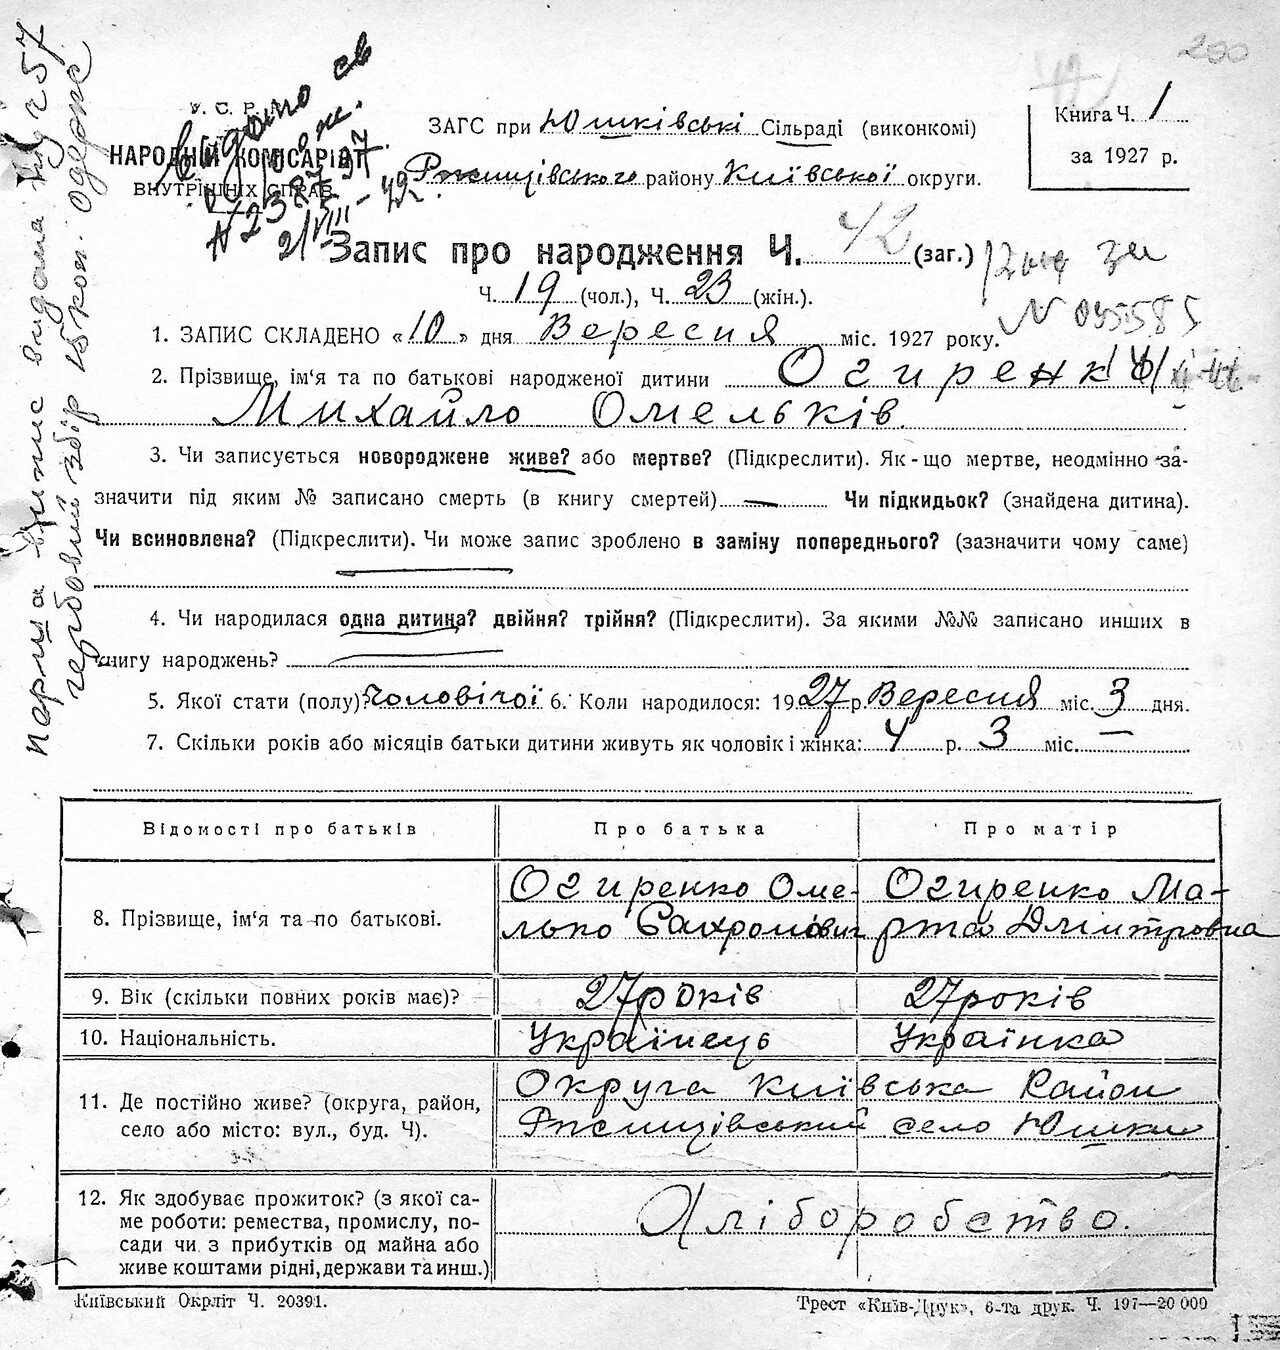 200
У. С. Р. Р.
НАРОДНІЙ КОМІСАРІЯТ
ВНУТРІШНІХ СПРАВ.
видано св
N 2387
ЗАГС при Юшківські Сільраді (виконкомі)
Ржищівського району Київської округи.
Книга Ч. 1
за 1927 р.
Запис про народження Ч. 42 (заг.)
Ч. 19 (чол.), Ч. 23 (жін.).
1. ЗАПИС СКЛАДЕНО «10» дня Вересня міс. 1927 року.
2. Прізвище, ім'я та по батькові народженої дитини Огиренко
Михайло Омельків.
3. Чи записується новороджене живе? або мертве? (Підкреслити). Як-що мертве, неодмінно за-
значити під яким № записано смерть (в книгу смертей) — Чи підкидьок? (знайдена дитина).
Чи всиновлена? (Підкреслити). Чи може запис зроблено в заміну попереднього? (зазначити чому саме)
4. Чи народилася одна дитина? двійня? трійня? (Підкреслити). За якими №№ записано инших в
книгу народжень?
5. Якої стати (полу)? Чоловічої 6. Коли народилося: 1927 р. Вересня міс. 3 дня.
7. Скільки років або місяців батьки дитини живуть як чоловік і жінка: 4 р. 3 міс. —
Відомості про батьків Про батька Про матір
8. Прізвище, ім'я та по батькові.
Огиренко Оме-
лько Сахронович
Огиренко Ма-
рта Дмитровна
9. Вік (скільки повних років має)? 27 років 27 років
10. Національність. Українець Українка
11. Де постійно живе? (округа, район,
село або місто: вул., буд. Ч).
Округа Київська Район
Ржищівський село Юшки
12. Як здобуває прожиток? (з якої са-
ме роботи: ремества, промислу, по-
сади чи з прибутків од майна або
живе коштами рідні, держави та инш.)
Хліборобство.
Київський Окрліт Ч. 20391.
Трест «Київ-Друк», 6-та друк. Ч. 197—20 000
перша випис видана
гербовий збір 15 коп. одерж